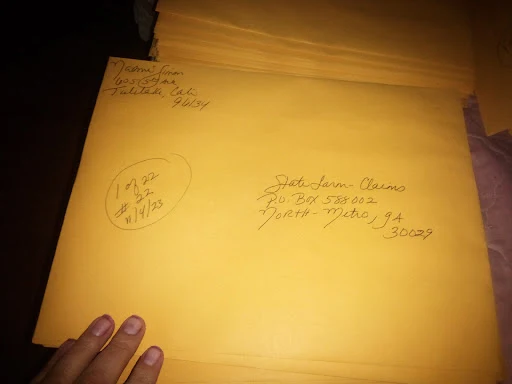 Naomi
Tulelake, Cali
96134
1 of 22
# 22
11/4/23
State Farm - Claims
P.O. Box 588002
North - Metro, GA
30029